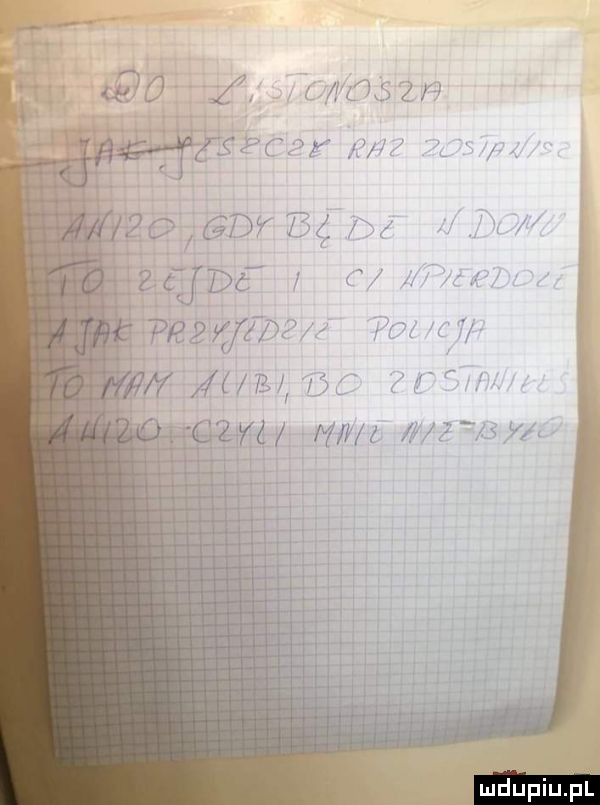 DO LISTONOSZA
JAK JESZCZE RAZ ZOSTAWISZ
AWIZO, GDY BĘDĘ W DOMU
TO ZEJDĘ I CI WPIERDOLĘ
A JAK PRZYJEDZIE POLICJA
TO MAM ALIBI, BO ZOSTAWIŁEŚ
AWIZO CZYLI MNIE NIE BYŁO
mdupiu.pl